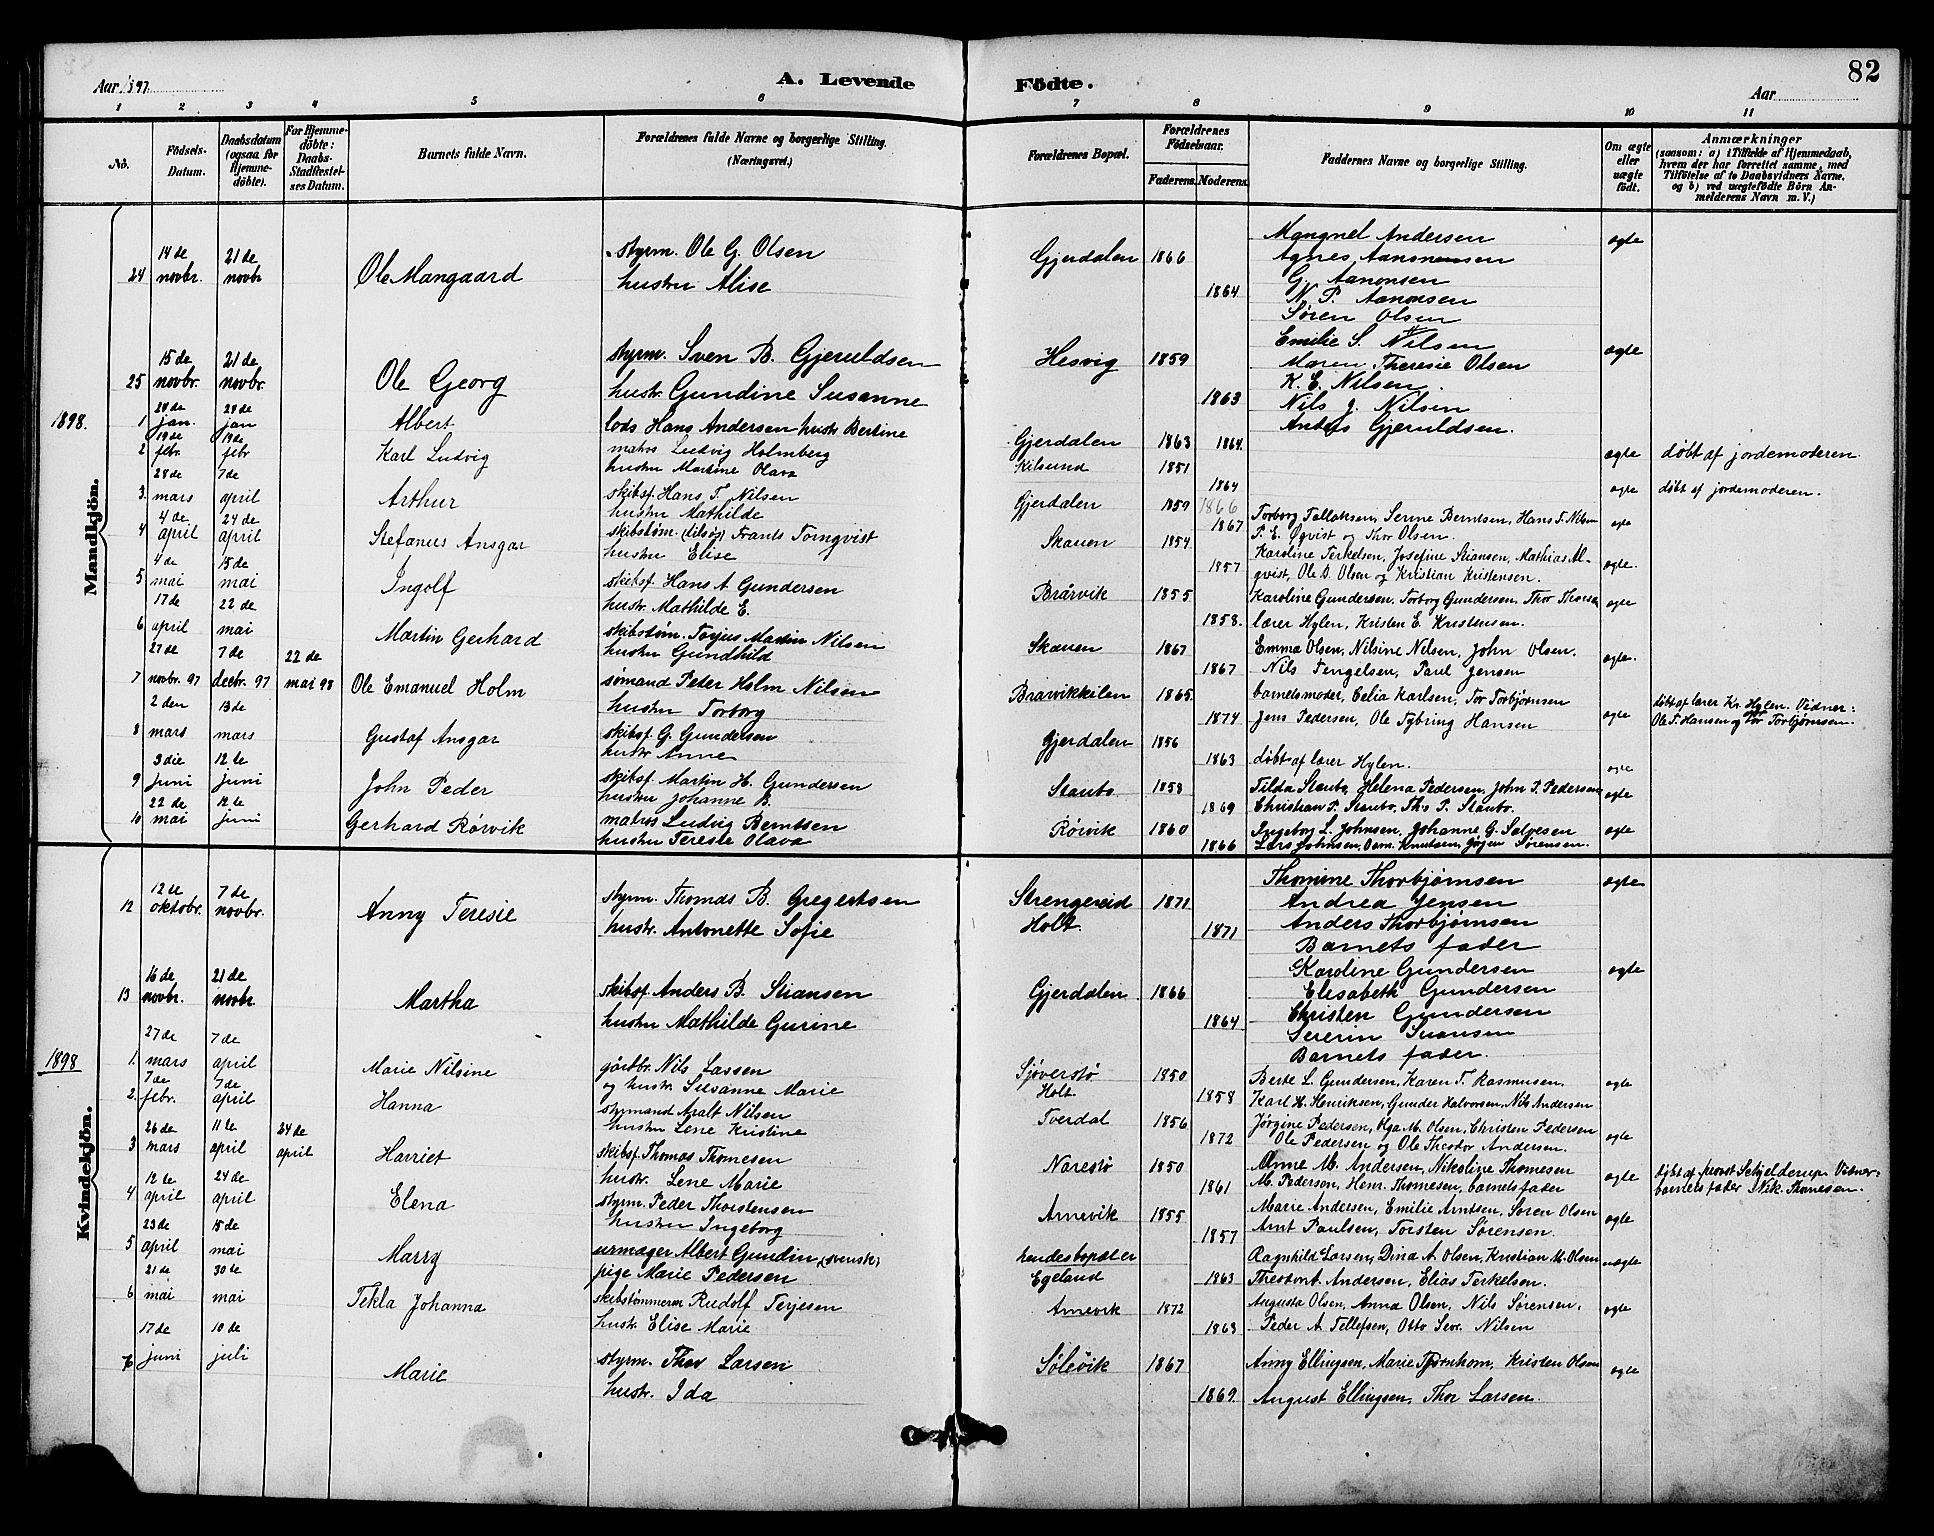 Aar 1897
A. Levende Födte.
82
Aar
1 2 3 4 5 6 7 8 9 10 11
No.
Födsels-Datum.
Daabsdatum (ogsaa for Hjemmedöbte).
For Hjemmedöbte: Daabs-Stadfestelses Datum.
Barnets fulde Navn.
Forældrenes fulde Navne og borgerlige Stilling. (Næringsvei.)
Forældrenes Bopæl.
Forældrenes Födselsaar.
Faderens. Moderens.
Faddernes Navne og borgerlige Stilling.
Om ægte eller uægte födt.
Anmærkninger
(saasom: a) i Tilfælde af Hjemmedaab, hvem der har forrettet samme, med Tilföielse af to Daabsvidners Navne, og b) ved uægtefödte Börn Anmelderens Navn m. V.)
Mandkjön.
24 14 de novbr. 21 de novbr Ole Mangaard styrm. Ole G. Olsen Gjerdalen 1866 Mangnel Andersen ægte
hustru Alise 1864 Agnes Aanonsen
G. Aanonsen
N. P. Aanonsen
Søren Olsen
25 15 de novbr. 21 de novbr. Ole Georg styrm. Sven B. Gjeruldsen Hesvig 1859 Emilie S. Nilsen ægte
hustr. Gundine Susanne 1863 Maren Theresie Olsen
K. E. Nilsen
Nils J. Nilsen
Anders Gjeruldsen.
1898.
1 jan. jan Albert lods Hans Andersen hustr Bertine Gjerdalen 1863 1864
2 19 de febr. 19 de febr Karl Ludvig matros Ludvig Holmberg Kilsund 1851 ægte døbt af jordemoderen.
hustru Martine Olava 1864
3. 28 de mars 7 de april Arthur skibsf. Hans T. Nilsen Gjerdalen 1859 1866 ægte døbt af jordemoderen.
hustru Mathilde 1867 Torborg Tallaksen, Serine Berntsen, Hans T. Nilsen
4 4 de april 24 de april Stefanus Ansgar skibstøm. Frants Tornqvist Skauen 1854 P. E. Qvist og Thor Olsen. ægte
hustru Elise 1857 Karoline Terkelsen, Josefine Stiansen, Mathias Al-
qvist, Ole D. Olsen og Kristian Kristensen. ægte.
5 4 de mai 15 de mai Ingolf skibsf. Hans A Gundersen Brårvik 1855 Karoline Gundersen, Torborg Gundersen, Thor Thorsen ægte
hustr. Mathilde E. 1858. lærer Hylen, Kristen E. Kristensen.
6 17 de april 22 de mai Martin Gerhard skibstøm. Torjus Martin Nilsen Skauen 1867 Emma Olsen, Nilsine Nilsen, John Olsen. ægte.
hustru Gundhild 1867 Nils Tengelsen, Paul Jensen
7 27 de novbr. 97 7 de decbr. 97 22 de mai 98 Ole Emanuel Holm sømand Peter Holm Nilsen Bravikkilen 1865 barnets moder, Celia Karlsen, Tor Torbjørnsen døbt af lærer Kr. Hylen. Vidner:
hustru Torborg 1874 Jens Pedersen, Ole Tybring Hansen ægte Ole T. Hansen og Tor Torbjørnsen.
8 2 den mars 13 de mars Gustaf Ansgar skibsf. G. Gundersen Gjerdalen 1856
hustr Anne 1863 døbt af lærer Hylen. ægte
9 3 die juni 12 te juni John Peder skibsf. Martin H. Gundersen Staubo 1858 Tilda Staubo, Helena Pedersen, John P. Pedersen ægte
hustru Johanne B. 1869 Christian P. Staubo, Ths P. Staubo.
10 22 de mai 12 te juni Gerhard Rørvik matros Ludvig Berntsen Rørvik 1860 Ingeborg L. Johnsen, Johanne G. Salvesen ægte
hustru Terese Olava 1866 Lars Johnsen, Osm. Knutsen, Jørgen Sørensen.
Kvindekjön.
12 12 te oktobr. 7 de novbr. Anny Teresie styrm. Thomas B. Gregertsen Strengereid 1871 Thomine Thorbjørnsen ægte
hustr. Antonette Sofie Holt. 1871 Andrea Jensen
Anders Thorbjørnsen
Barnets fader
13 16 de novbr. 21 de novbr. Martha skibsf Anders B. Stiansen Gjerdalen 1866 Karoline Gundersen ægte
hustru Mathilde Gurine 1864 Elisabeth Gundersen
Christen Gundersen
Sererin Svensen
Barnets fader.
1898
1. 27 de mars 7 de april Marie Nilsine gårdbr. Nils Lassen Sjøverstø 1850 Berte L. Gundersen, Karen T. Rasmusen. ægte
og hustr. Susanne Marie Holt 1858 Karl H. Henriksen, Gunder Halvorsen, Nils Andersen
2. 7 de febr. 7 de april Hanna styrmand Aralt Nilsen Tverdal 1856 Jørgine Pedersen, Olga M. Olsen, Christen Pedersen ægte
hustru Lene Kristine 1872 Ole Pedersen og Ole Theodor Andersen.
3 26 de mars 11 te april 24 de april Harriet skibsf. Thomas Thomesen Narestø 1850 Anne M. Andersen, Nikoline Thomesen ægte døbt af provst Schjelderup. Vidner:
hustr. Lene Marie 1861 M. Pedersen, Henr. Thomesen, barnets fader barnets fader Nik. Thomesen.
4 12 te april 24 de april Elena styrm. Peder Thorstensen Arnevik 1855 Marie Andersen, Emilie Arntsen, Søren Olsen ægte
hustru Ingeborg 1857 Arnt Paulsen, Torsten Sørensen.
5 23 de april 15 de mai Marry urmager Albert Gundin (svensk) hendes bopæl er Ragnhild Larsen, Dina A. Olsen, Kristian M. Olsen uægte
pige Marie Pedersen Egeland 1863 Theodor A. Andersen, Elias Terkelsen.
6 21 de mai 30 te mai Tekla Johanna skibstømmerm Rudolf Terjesen Arnevik 1872 Augusta Olsen, Anna Olsen, Nils Sørensen, ægte
hustr. Elise Marie 1863 Peder A Tellefsen, Otto Sev. Nilsen
7 17 de juni 10 de juli Marie styrm. Thor Larsen Sølevik 1867 Anny Ellingsen, Marie Tjørnhom, Kristen Olsen ægte
hustr. Ida 1869. August Ellingsen, Thor Larsen.